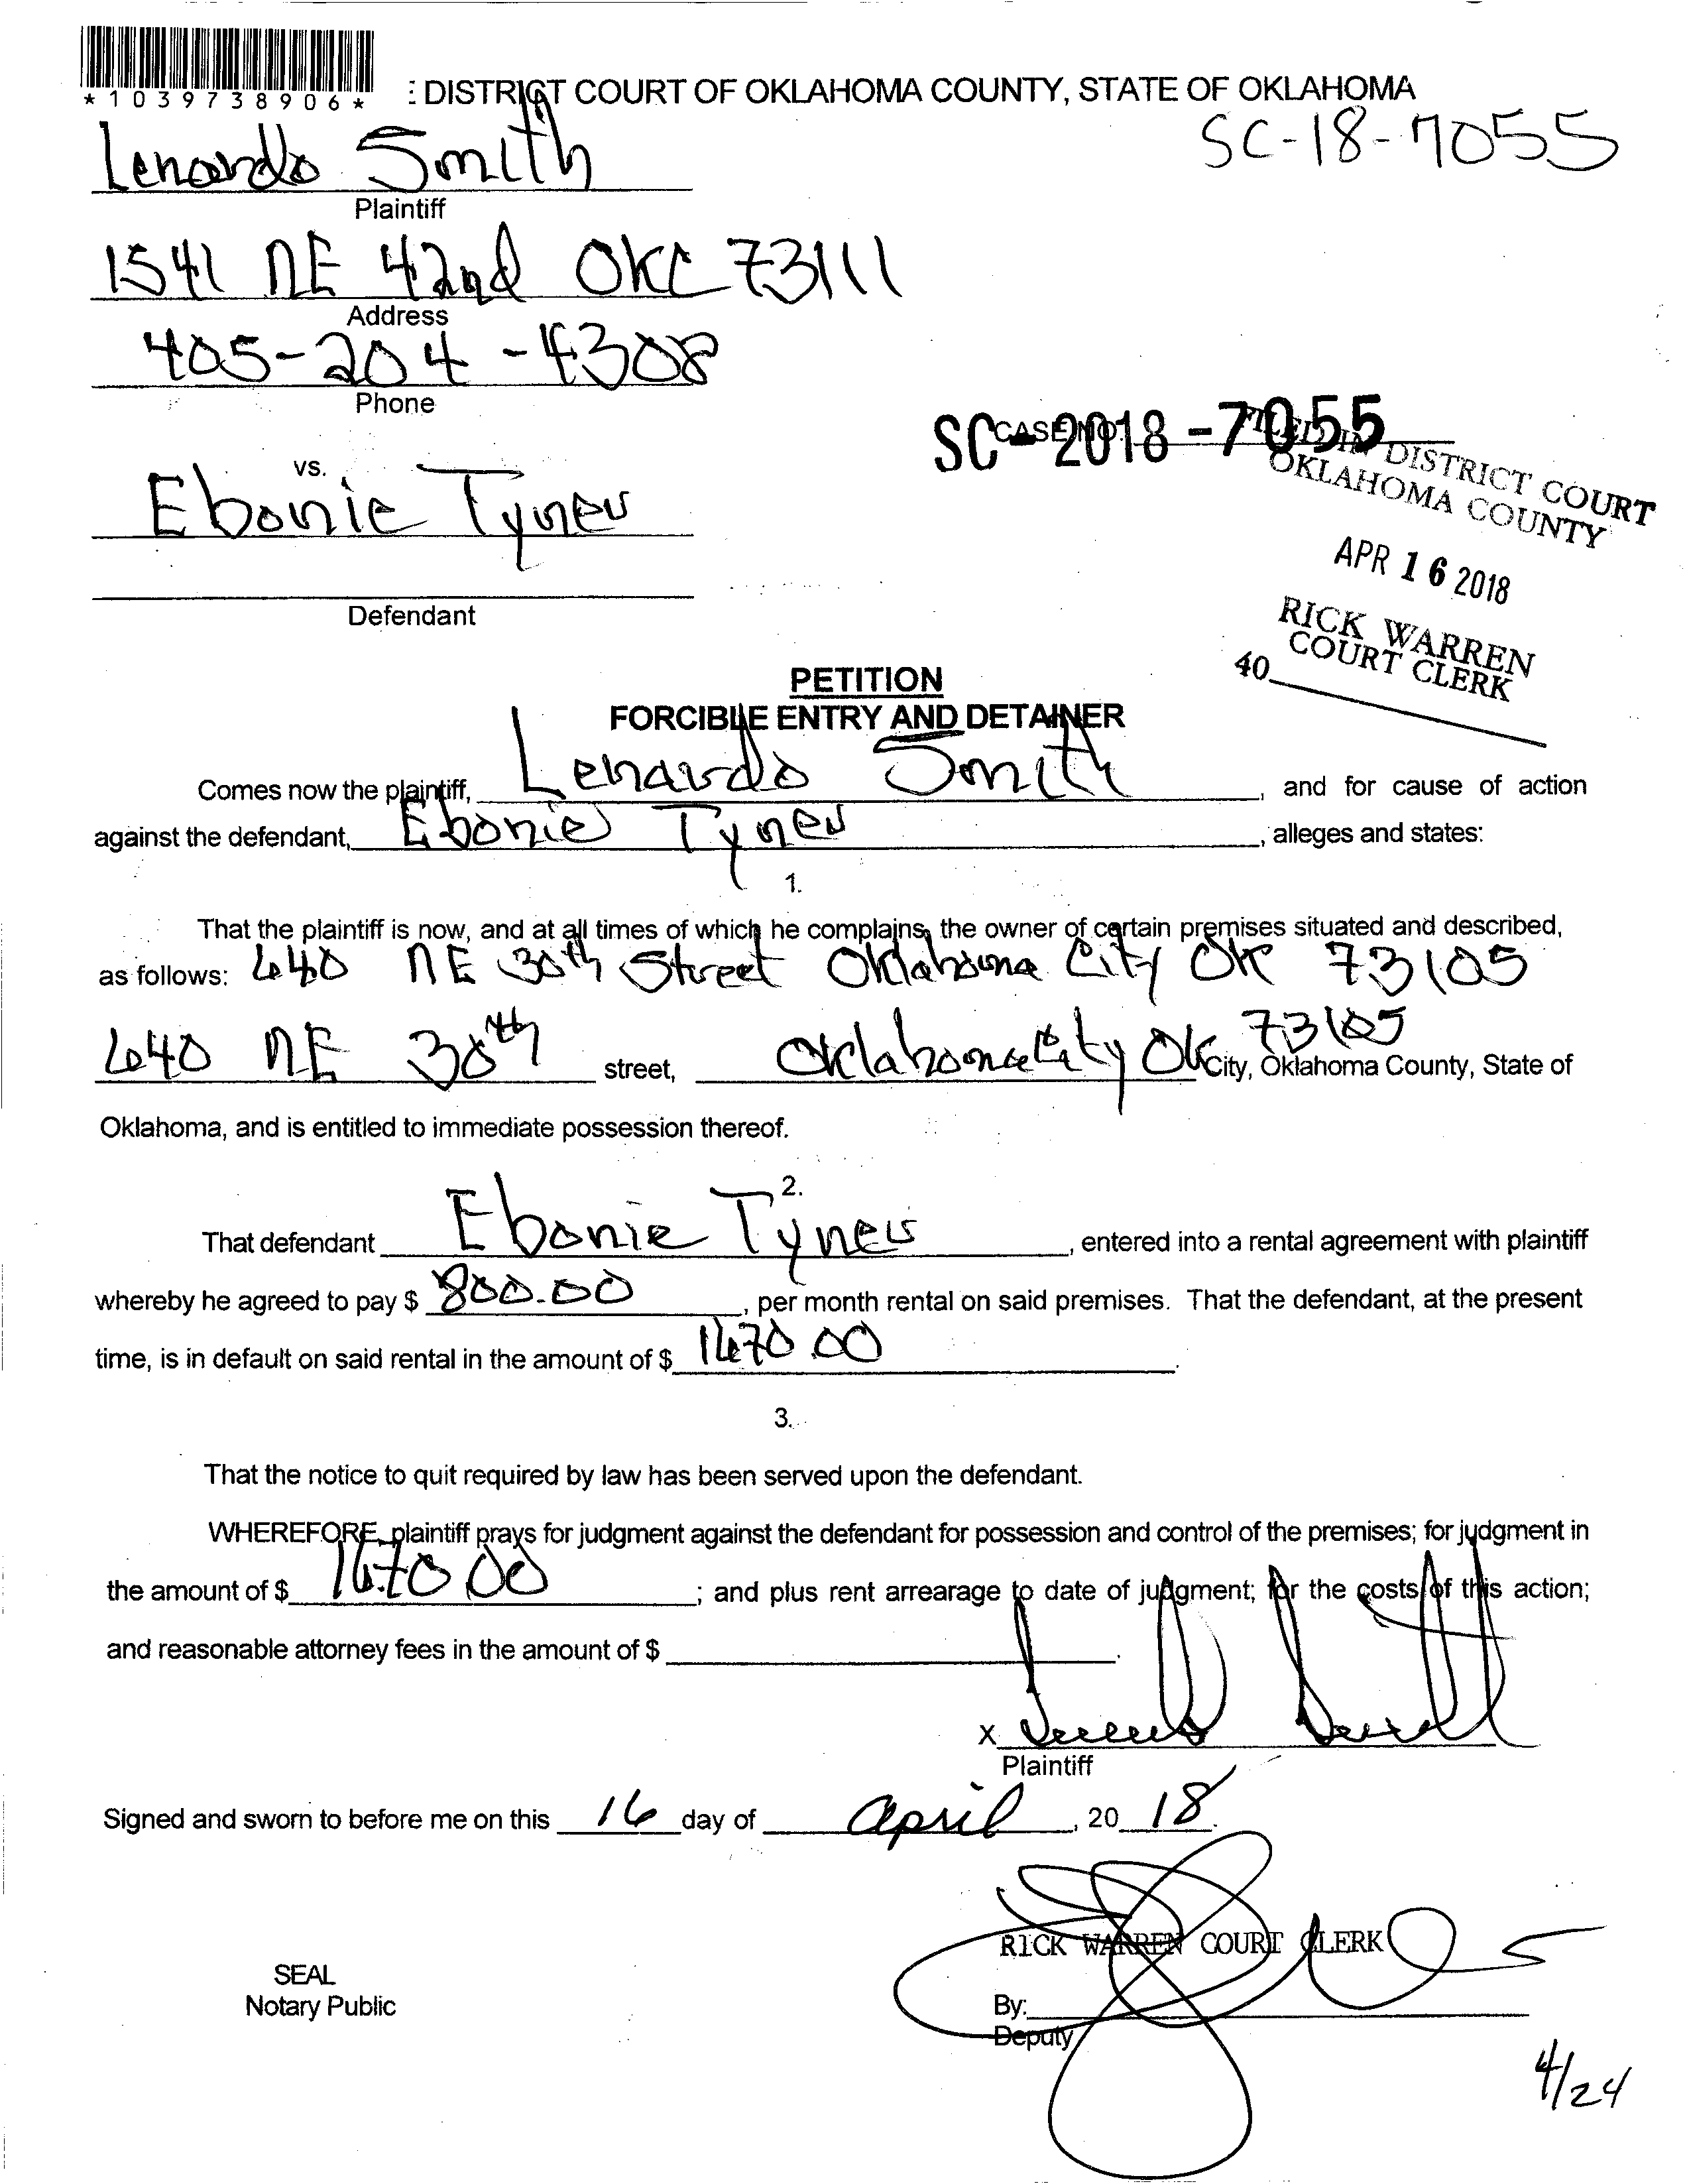 *1039738906*
: DISTRICT COURT OF OKLAHOMA COUNTY, STATE OF OKLAHOMA
SC-18-7055
Lenardo Smith
Plaintiff
1541 NE 42nd OKC 73111
Address
405-204-4308
Phone
SC-2018-7055
CASE NO.
FILED IN DISTRICT COURT
OKLAHOMA COUNTY
APR 16 2018
RICK WARREN
COURT CLERK
40
vs.
Ebonie Tyner
Defendant
PETITION
FORCIBLE ENTRY AND DETAINER
Comes now the plaintiff, Lenardo Smith, and for cause of action
against the defendant, Ebonie Tyner, alleges and states:
1.
That the plaintiff is now, and at all times of which he complains, the owner of certain premises situated and described,
as follows: 640 NE 30th Street Oklahoma City OK 73105
640 NE 30th street, Oklahoma City OK 73105 City, Oklahoma County, State of
Oklahoma, and is entitled to immediate possession thereof.
2.
That defendant Ebonie Tyner, entered into a rental agreement with plaintiff
whereby he agreed to pay $ 800.00, per month rental on said premises. That the defendant, at the present
time, is in default on said rental in the amount of $ 1670.00.
3.
That the notice to quit required by law has been served upon the defendant.
WHEREFORE, plaintiff prays for judgment against the defendant for possession and control of the premises; for judgment in
the amount of $ 1670 00; and plus rent arrearage to date of judgment; for the costs of this action;
and reasonable attorney fees in the amount of $.
X
Plaintiff
Signed and sworn to before me on this 16 day of April, 20 18.
RICK WARREN COURT CLERK
SEAL
Notary Public
By:
Deputy
4/24